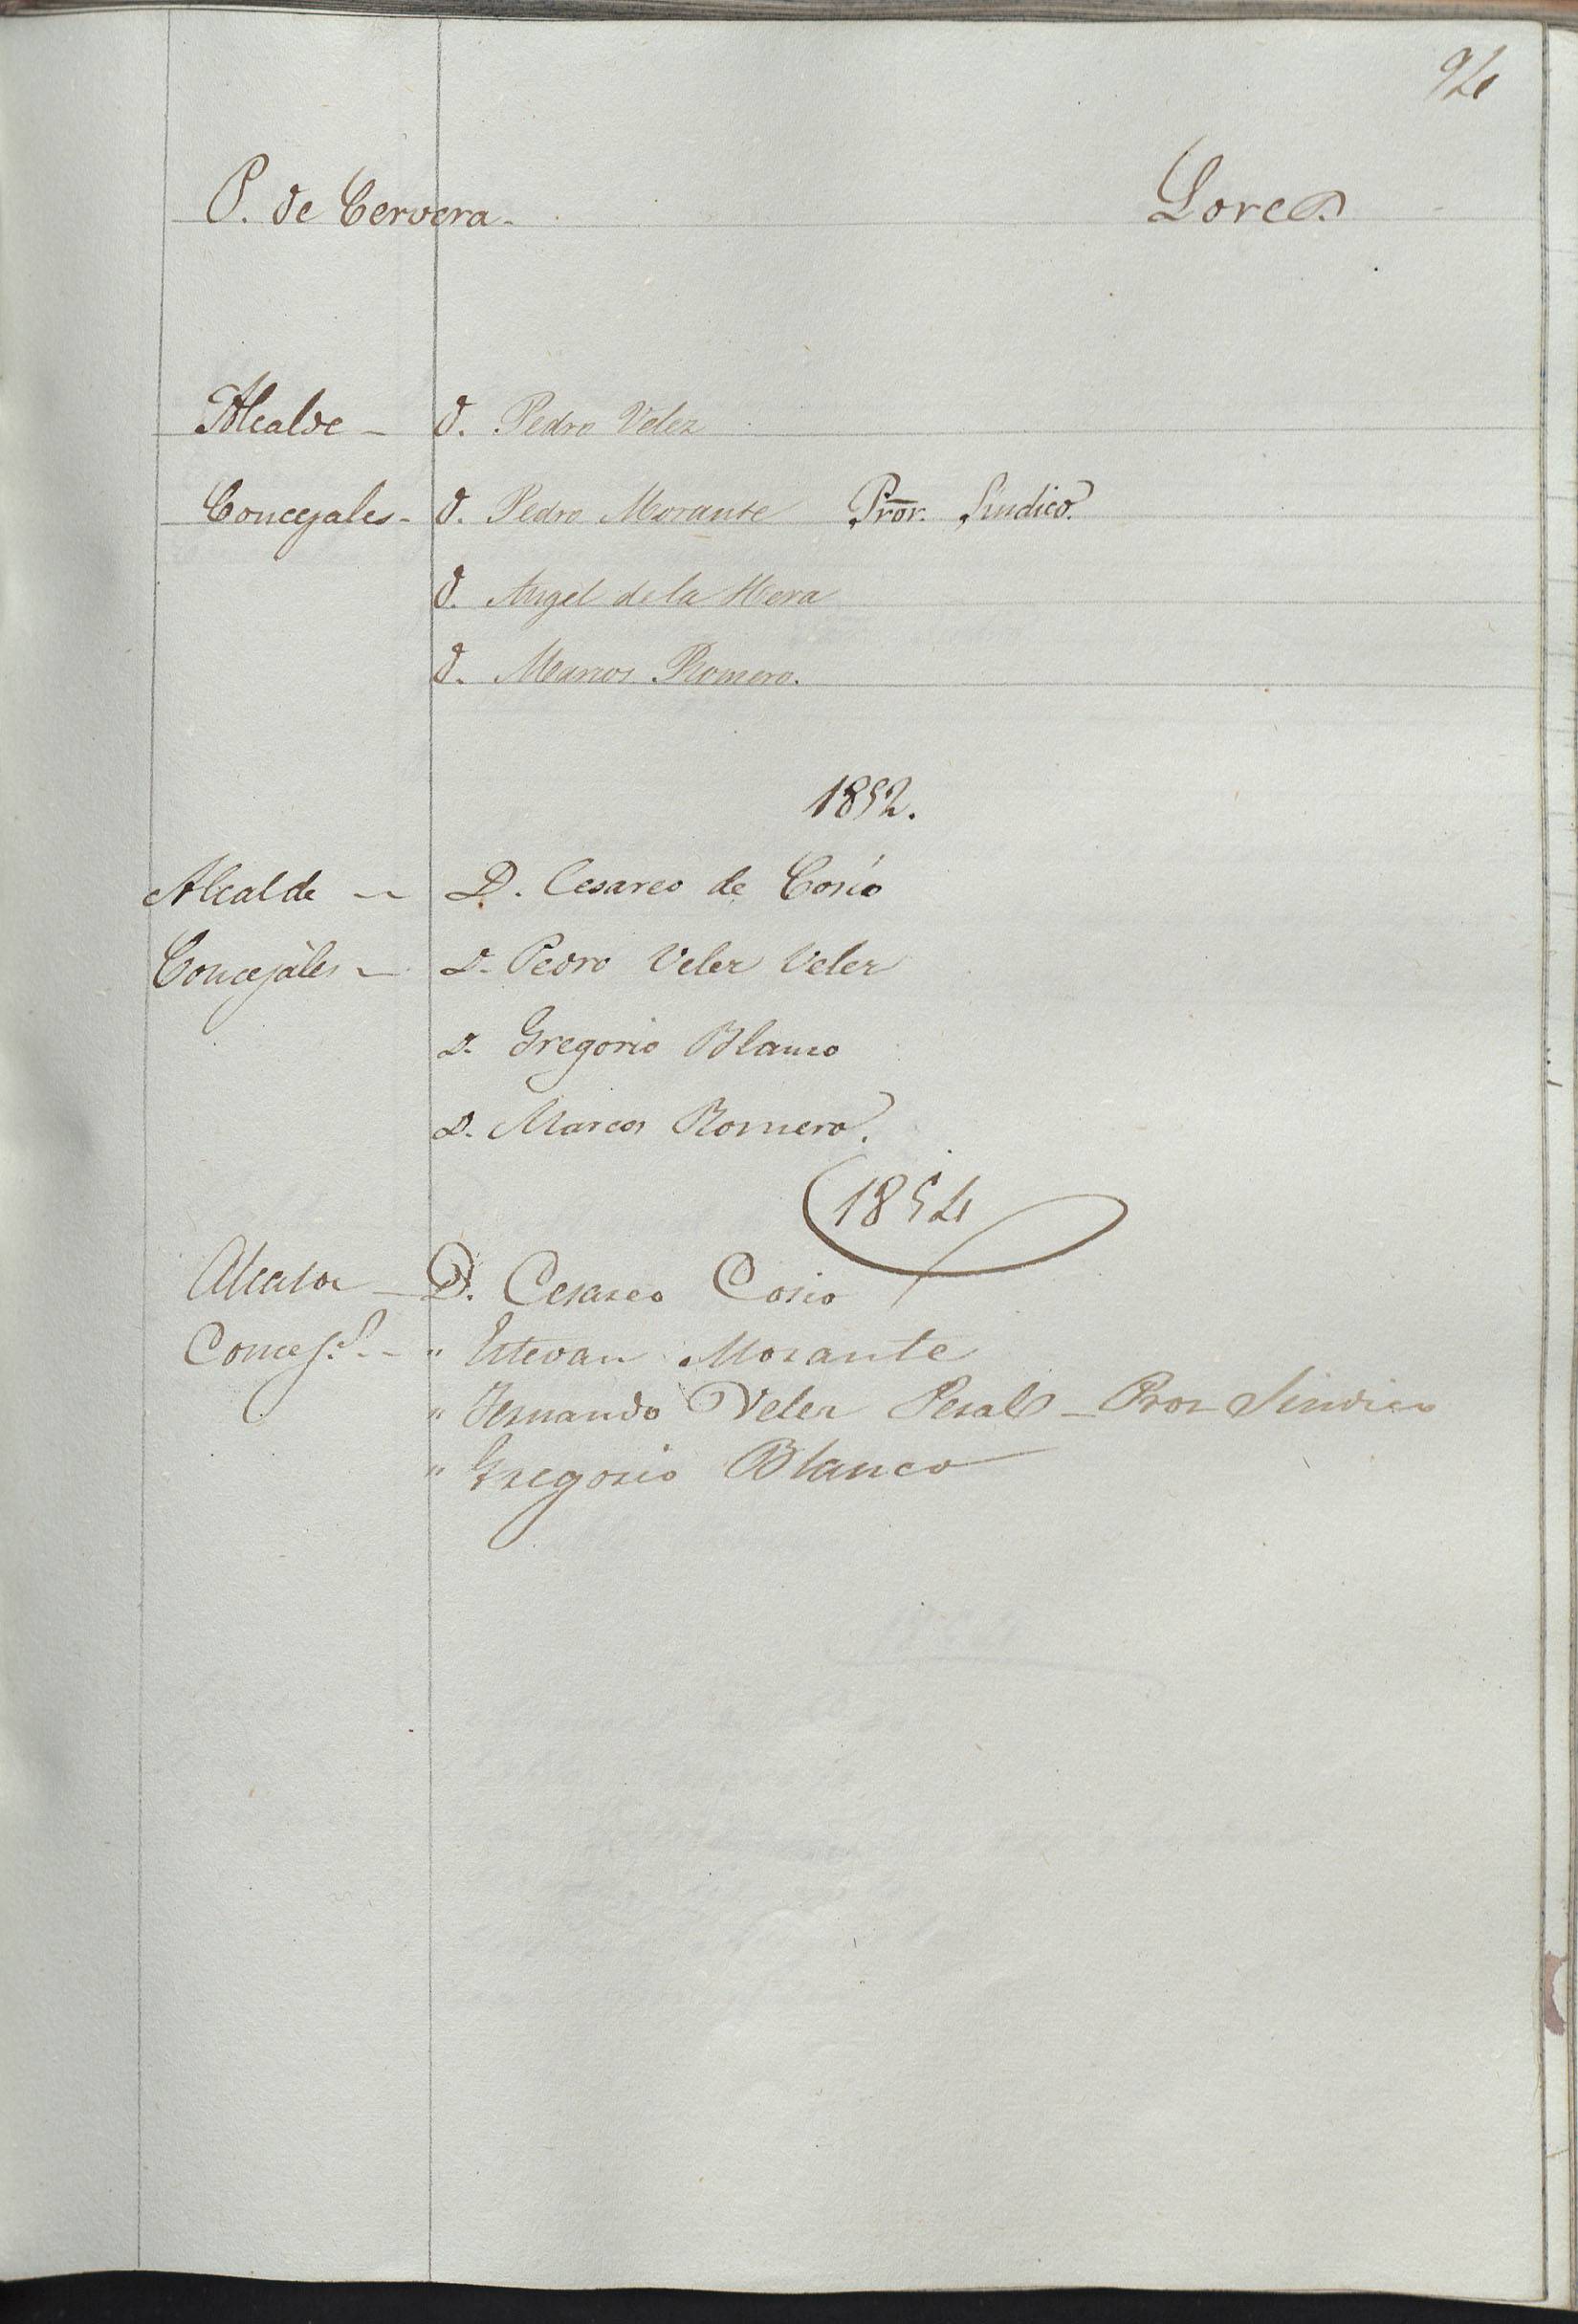 94
P. de Cervera - Lores
Alcalde - D. Pedro Velez
Concejales - D. Pedro Morante Pror. Sindico.
D. Angel de la Hera
D. Marcos Romero.
1852.
Alcalde - D. Cesareo de Cosío
Concejáles - D. Pedro Velez Velez
D. Gregorio Blanco
D. Marcos Romero.
1854
Alcalde - D. Cesareo Cosio
Concej.s - " Estevan Morante
" Fernando Velez Peral - Pror Sindico
" Gregorio Blanco